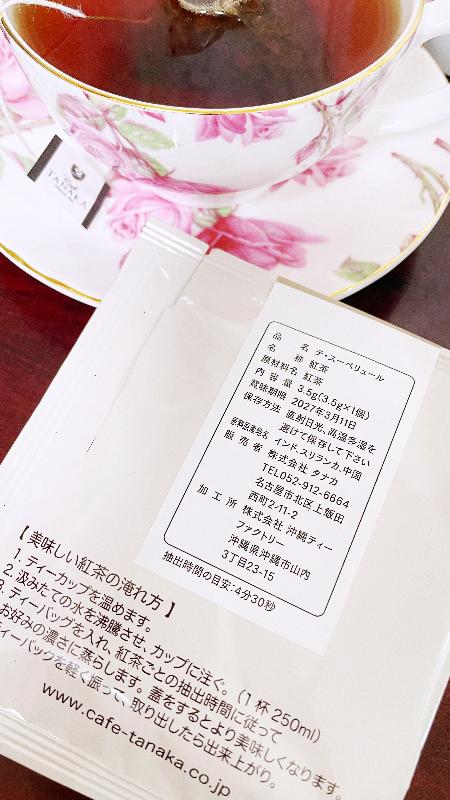 Café
TANAKA
品　名 テ・スーペリュール
名　称 紅茶
原材料名 紅茶
内 容 量 3.5g(3.5g×1個)
賞味期限 2027年3月11日
保存方法 直射日光、高温多湿を
避けて保存して下さい
原料原産地名 インド、スリランカ、中国
販 売 者 株式会社 タナカ
TEL052-912-6664
名古屋市北区上飯田
西町2-11-2
加 工 所 株式会社 沖縄ティー
ファクトリー
沖縄県沖縄市山内
3丁目23-15
抽出時間の目安:4分30秒
【 美味しい紅茶の淹れ方 】
1. ティーカップを温めます。
2. 汲みたての水を沸騰させ、カップに注ぐ。(1 杯 250ml)
3. ティーバッグを入れ、紅茶ごとの抽出時間に従って
お好みの濃さに蒸らします。蓋をするとより美味しくなります。
ティーバックを軽く振って、取り出したら出来上がり。
www.cafe-tanaka.co.jp